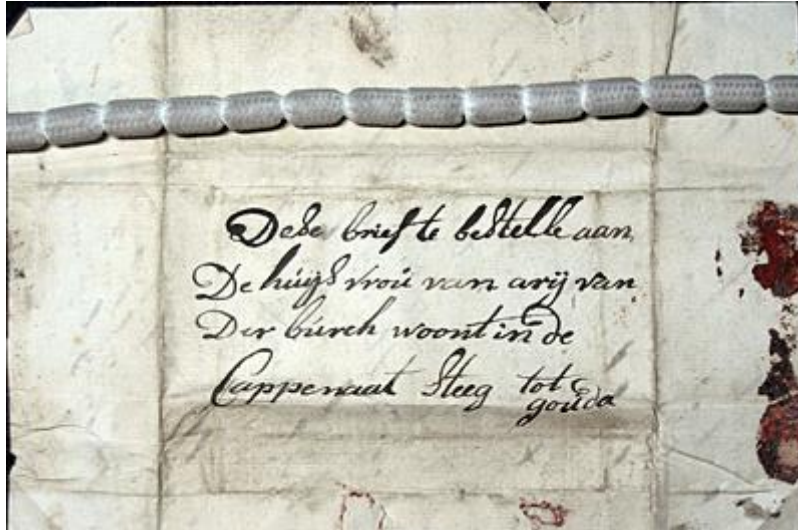 Dese brief te bestelle aan
De huijs vroú van arij van
Der búrch woont in de
Cappenaat Steeg tot
goúda